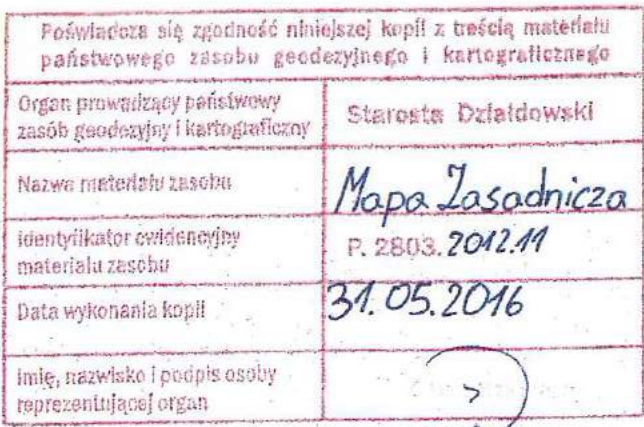 Poświadcza się zgodność niniejszej kopii z treścią materiału
państwowego zasobu geodezyjnego i kartograficznego
Organ prowadzący państwowy
zasób geodezyjny i kartograficzny
Starosta Działdowski
Nazwa materiału zasobu
Mapa Zasadnicza
Identyfikator ewidencyjny
materiału zasobu
P. 2803.2012.11
Data wykonania kopii
31.05.2016
Imię, nazwisko i podpis osoby
reprezentującej organ